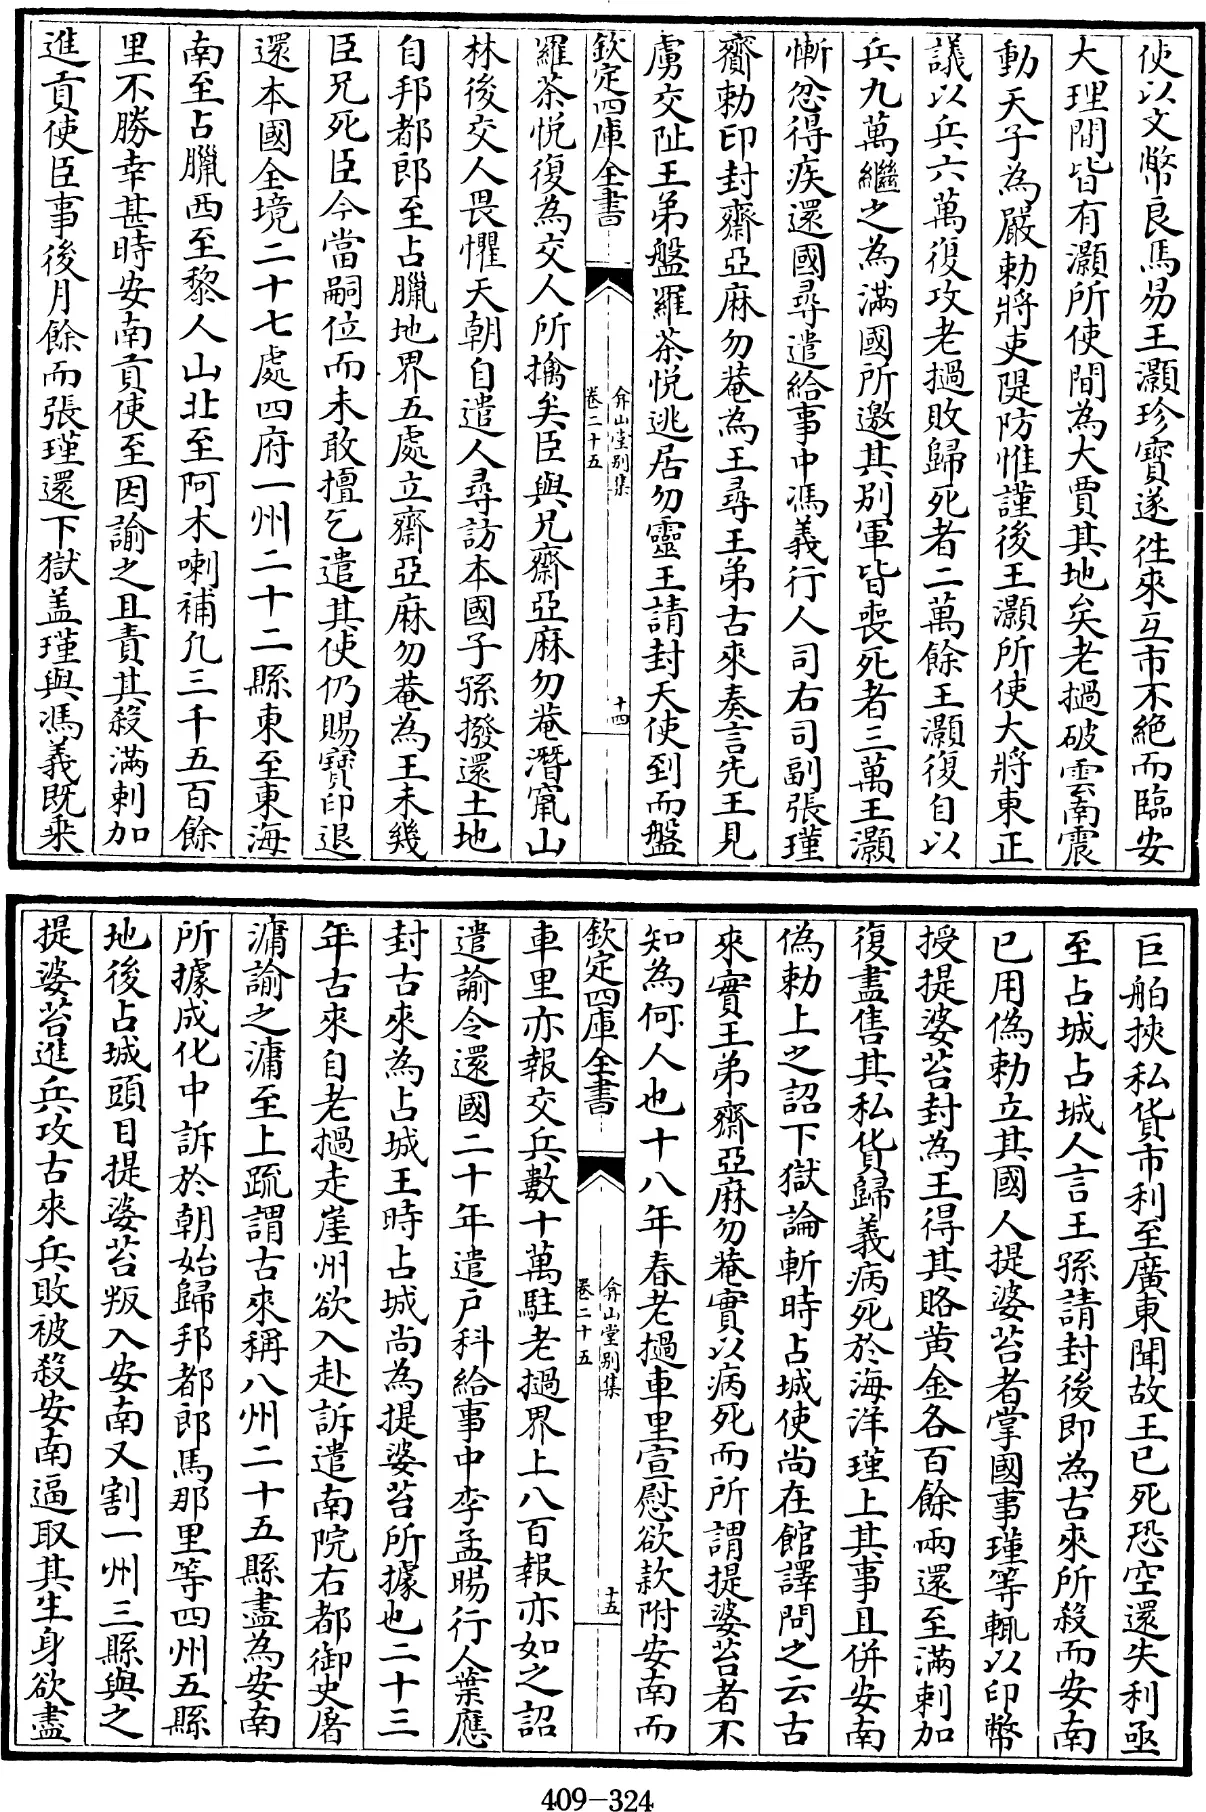 使以文幣良馬易王灝珍寶遂往來互市不絶而臨安
大理間皆有灝所使間為大賈其地矣老撾破雲南震
動天子為嚴勅將吏隄防惟謹後王灝所使大將東正
議以兵六萬復攻老撾敗歸死者二萬餘王灝復自以
兵九萬繼之為滿國所邀其别軍皆喪死者三萬王灝
慚忿得疾還國尋遣給事中馮義行人司右司副張瑾
齎勅印封齋亞麻勿菴為王尋王弟古來奏言先王見
虜交阯王弟盤羅茶悦逃居勿靈王請封天使到而盤
欽定四庫全書
弇山堂别集
卷二十五
十四
羅茶悦復為交人所擒矣臣與兄齋亞麻勿菴潛竄山
林後交人畏懼天朝自遣人尋訪本國子孫撥還土地
自邦都郎至占臘地界五處立齋亞麻勿菴為王未幾
臣兄死臣今當嗣位而未敢擅乞遣其使仍賜寶印退
還本國全境二十七處四府一州二十二縣東至東海
南至占臘西至黎人山北至阿木喇補凢三千五百餘
里不勝幸甚時安南貢使至因諭之且責其殺滿剌加
進貢使臣事後月餘而張瑾還下獄盖瑾與馮義既乗
巨舶挾私貨市利至廣東聞故王已死恐空還失利亟
至占城占城人言王孫請封後即為古來所殺而安南
已用偽勅立其國人提婆苔者掌國事瑾等輒以印幣
授提婆苔封為王得其賂黄金各百餘兩還至滿剌加
復盡售其私貨歸義病死於海洋瑾上其事且併安南
偽勅上之詔下獄論斬時占城使尚在館譯問之云古
來實王弟齋亞麻勿菴實以病死而所謂提婆苔者不
知為何人也十八年春老撾車里宣慰欲款附安南而
欽定四庫全書
弇山堂别集
卷二十五
十五
車里亦報交兵數十萬駐老撾界上八百報亦如之詔
遣諭令還國二十年遣户科給事中李孟暘行人葉應
封古來為占城王時占城尚為提婆苔所據也二十三
年古來自老撾走崖州欲入赴訴遣南院右都御史屠
滽諭之滽至上疏謂古來稱八州二十五縣盡為安南
所據成化中訴於朝始歸邦都郎馬那里等四州五縣
地後占城頭目提婆苔叛入安南又割一州三縣與之
提婆苔進兵攻古來兵敗被殺安南逼取其生身欲盡
409-324